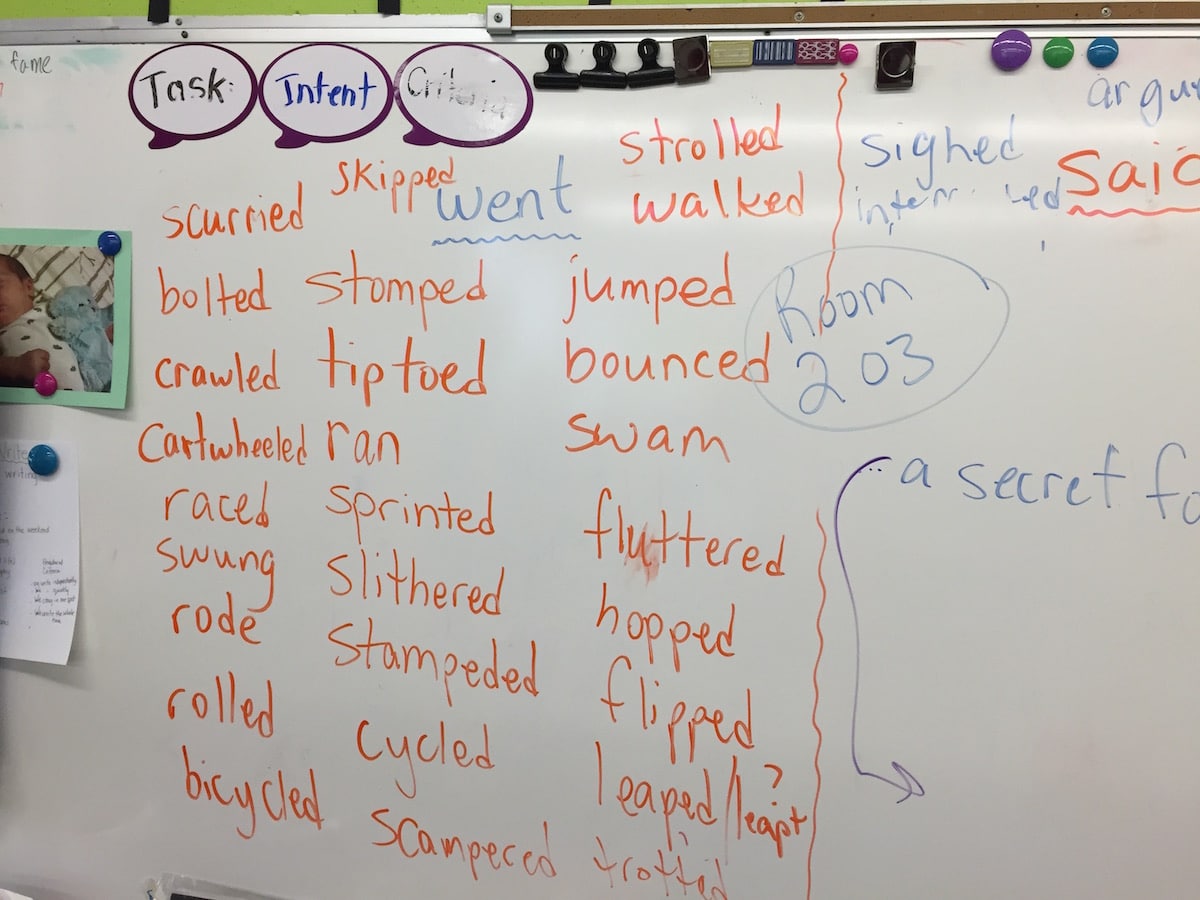 fame
Task:
Intent
Criteria
argu
strolled
sighed
skipped
went
walked
said
scurried
bolted
stomped
jumped
Room
203
crawled
tiptoed
bounced
cartwheeled
ran
swam
a secret fo
raced
sprinted
fluttered
swung
slithered
hopped
rode
stampeded
flipped
rolled
cycled
leaped/leapt?
bicycled
scampered
trotted